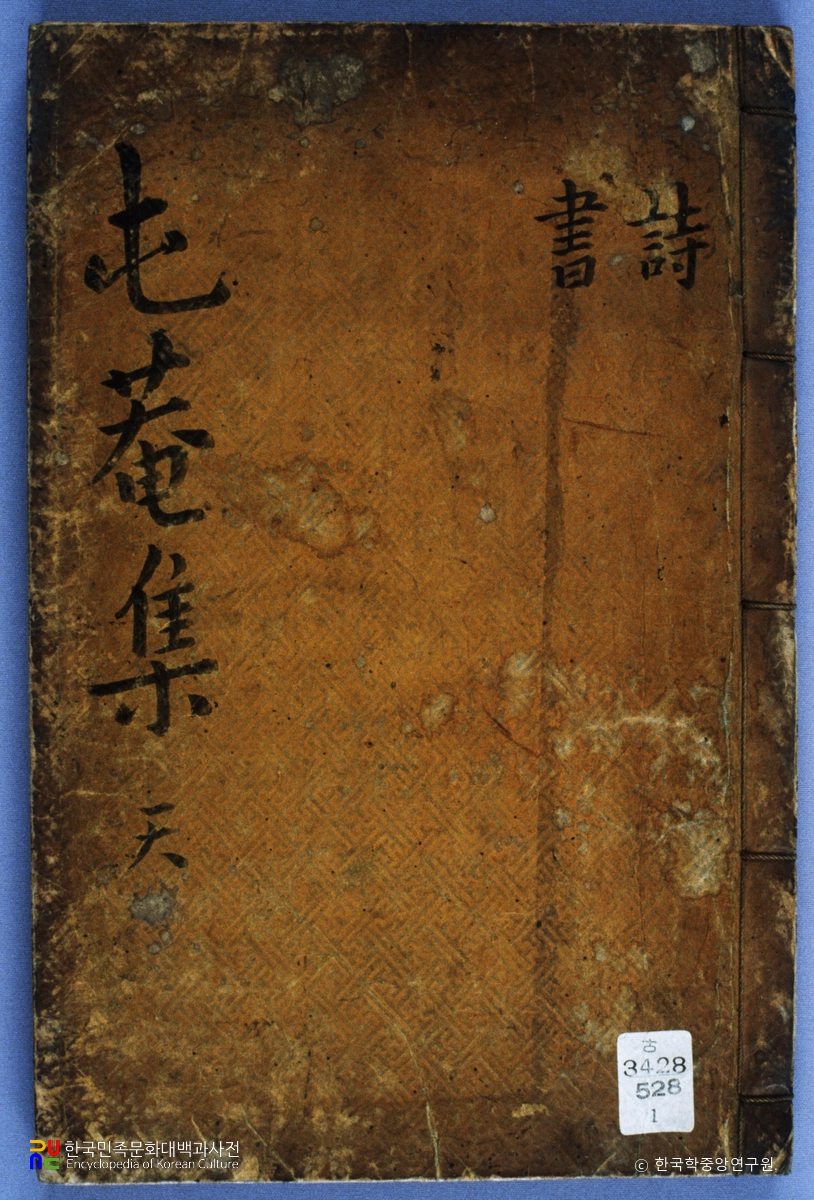 詩
書
屯菴集 天
古
3428
528
1
한국민족문화대백과사전
Encyclopedia of Korean Culture
© 한국학중앙연구원